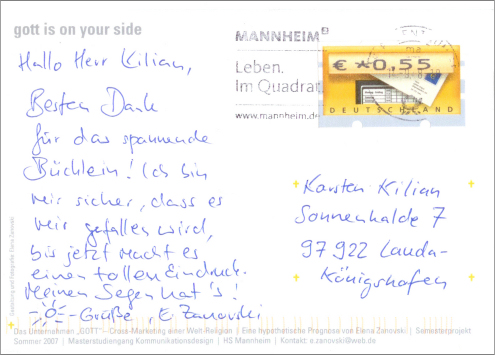 gott is on your side
Hallo Herr Kilian,
Besten Dank
für das spannende
Büchlein! Ich bin
mir sicher, dass es
mir gefallen wird,
bis jetzt macht es
einen tollen Eindruck.
Meinen Segen hat's!
Grüße, E Zanovski
MANNHEIM²
Leben.
Im Quadrat
www.mannheim.de
€ *0,55
DEUTSCHLAND
Karsten Kilian
Sonnenhalde 7
97922 Lauda-
Königshofen
Gestaltung und Fotografie: Elena Zanovski
Das Unternehmen „GOTT“ – Cross-Marketing einer Welt-Religion | Eine hypothetische Prognose von Elena Zanovski | Semesterprojekt
Sommer 2007 | Masterstudiengang Kommunikationsdesign | HS Mannheim | Kontakt: e.zanovski@web.de